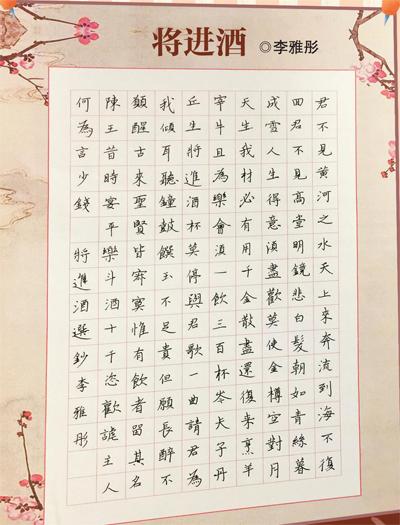 将进酒 ◎李雅彤
君不見黃河之水天上來奔流到海不復
回君不見高堂明鏡悲白髮朝如青絲暮
成雪人生得意須盡歡莫使金樽空對月
天生我材必有用千金散盡還復来烹羊
宰牛且為樂會須一飲三百杯岑夫子丹
丘生將進酒杯莫停與君歌一曲請君為
我傾耳聽鐘鼓饌玉不足貴但願長醉不
願醒古來聖賢皆寂寞惟有飲者留其名
陳王昔時宴平樂斗酒十千恣歡謔主人
何為言少錢 將進酒選鈔李雅彤